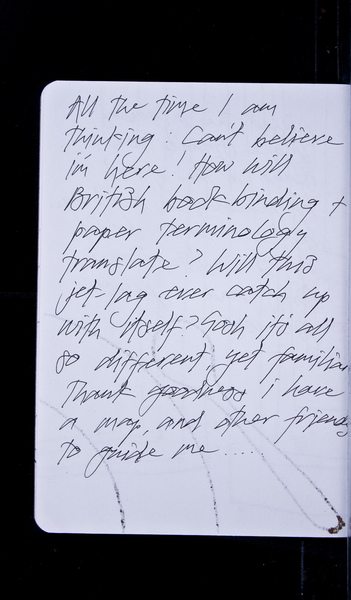 All the time I am
thinking: Can't believe
I'm here! How will
British bookbinding +
paper terminology
translate? Will this
jet-lag ever catch up
with itself? Gosh it's all
so different, yet familiar
Thank goodness i have
a map, and other friends
to guide me .....